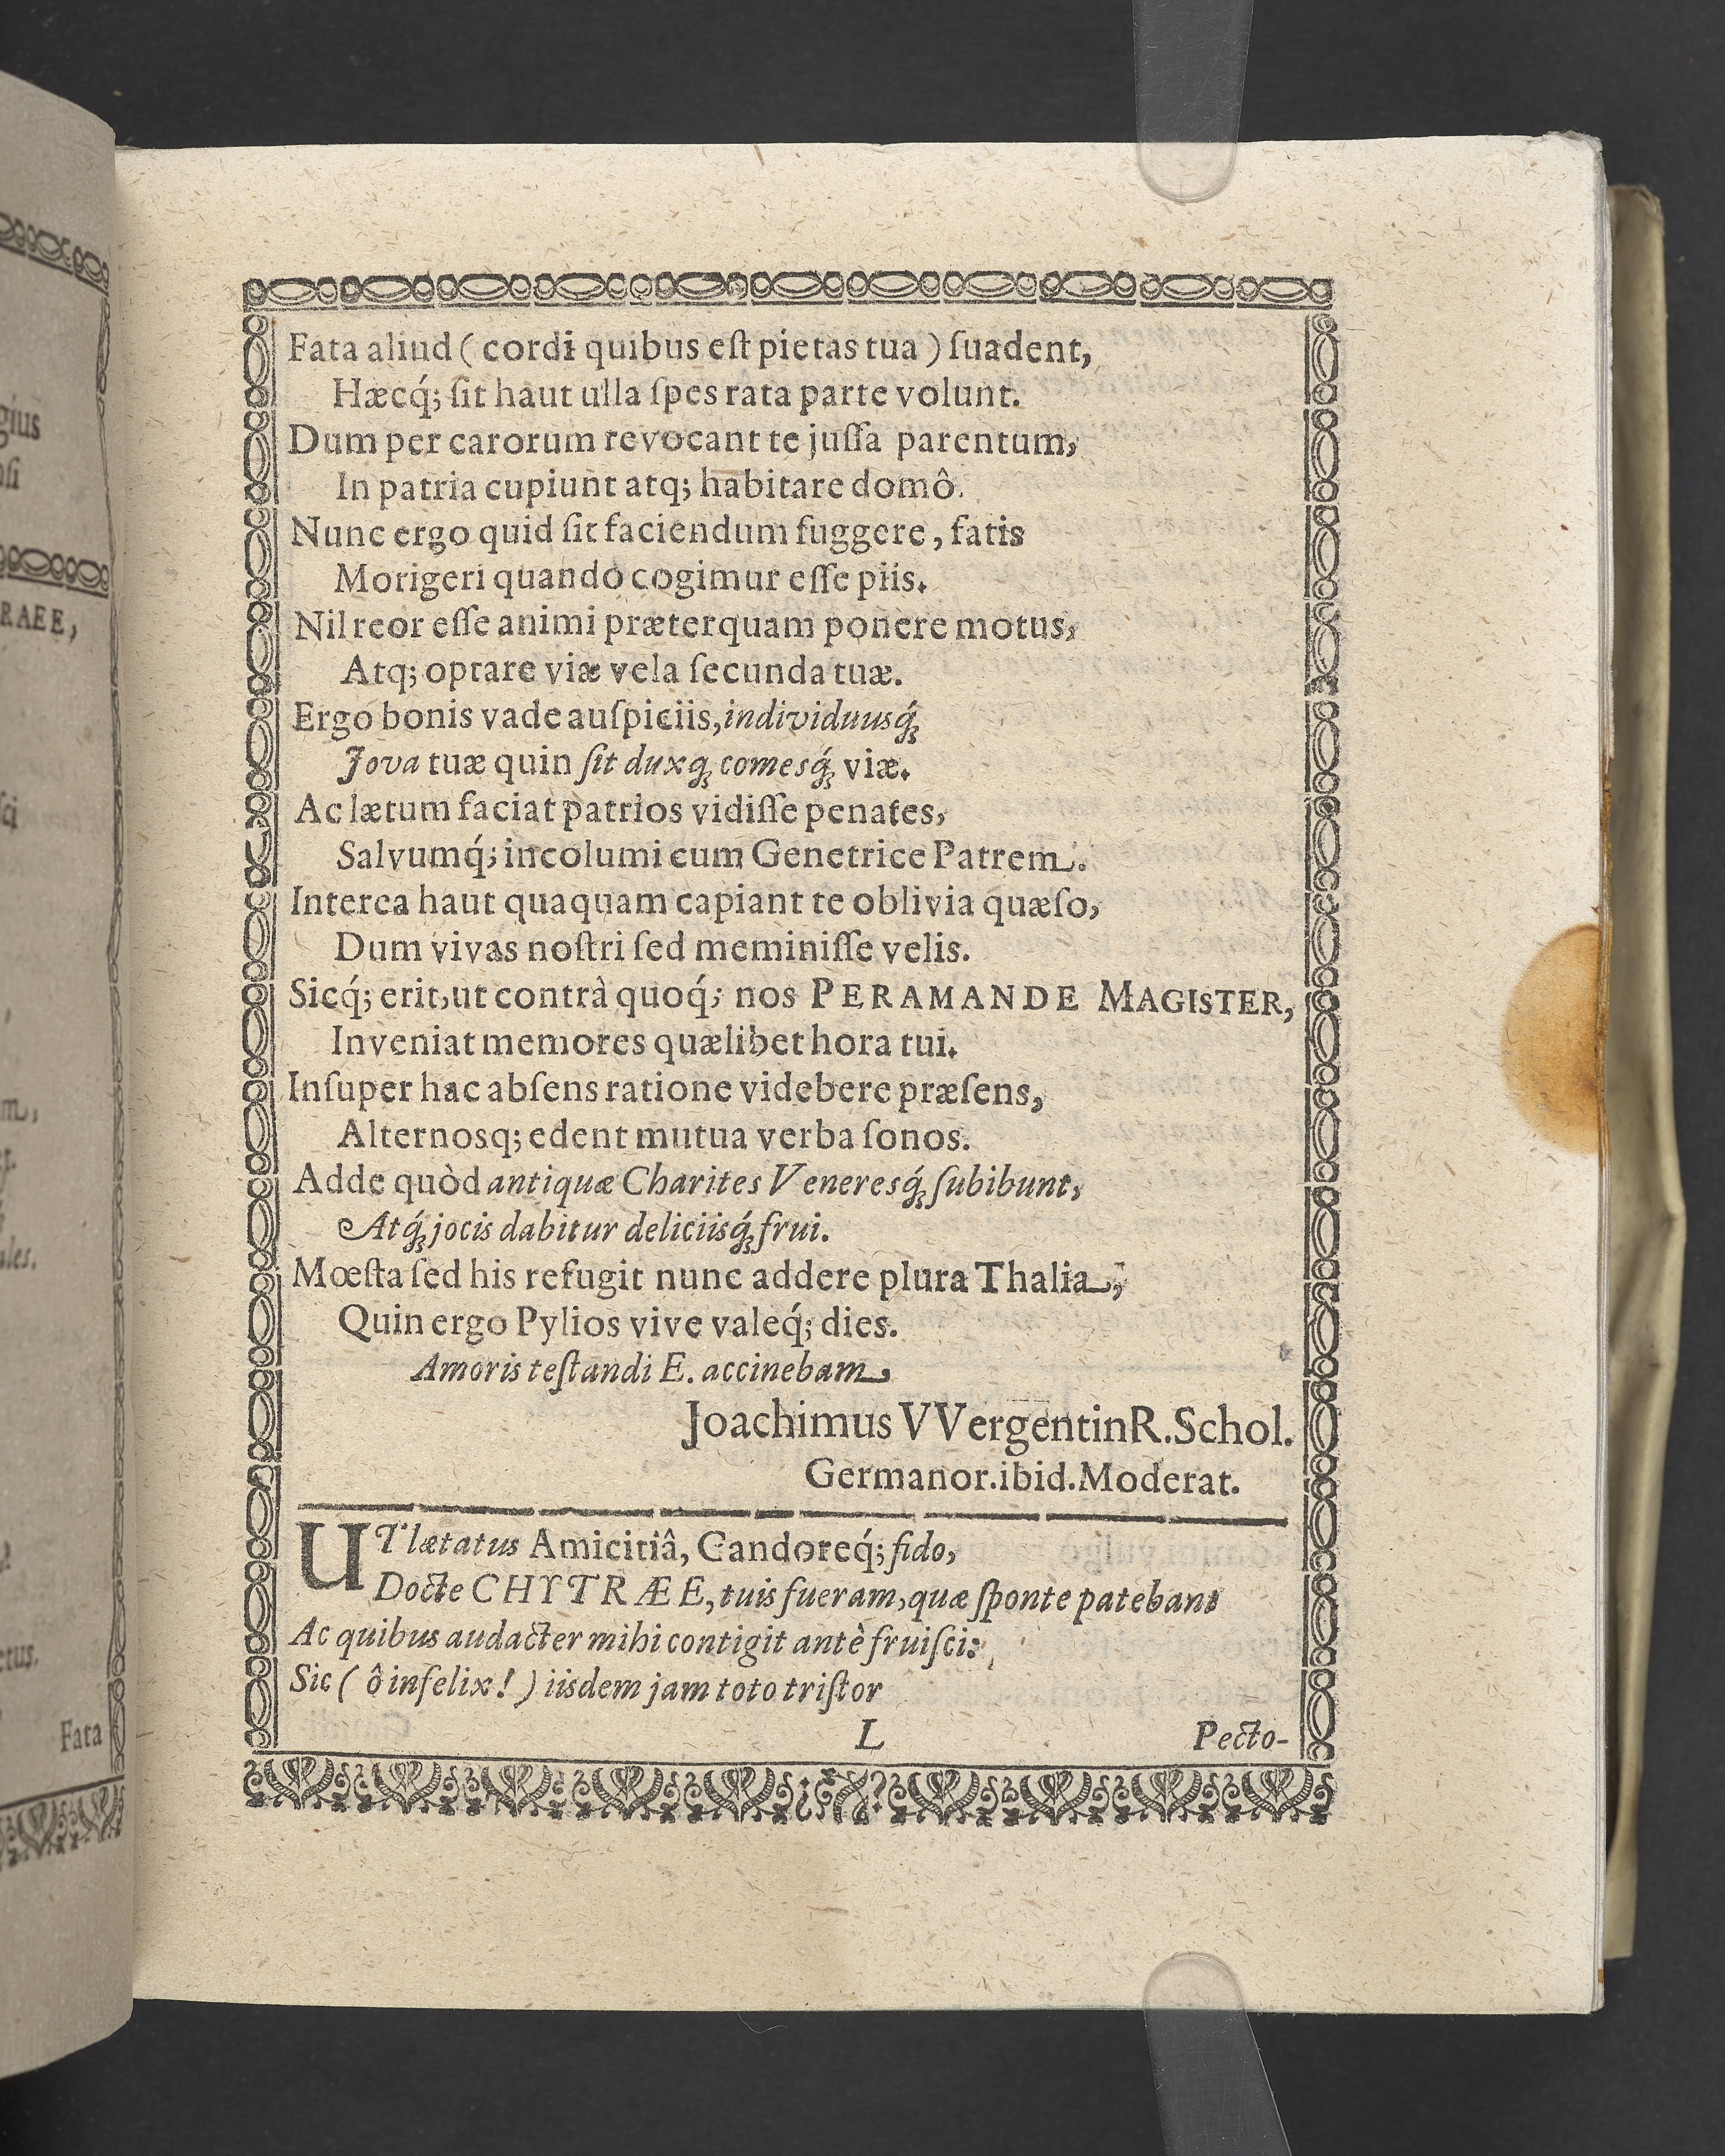 Fata aliud ( cordi quibus eſt pietas tua ) ſuadent,
Hæcq́; ſit haut ulla ſpes rata parte volunt.
Dum per carorum revocant te juſſa parentum,
In patria cupiunt atq; habitare domô.
Nunc ergo quid ſit faciendum fuggere, fatis
Morigeri quando cogimur eſſe piis.
Nil reor eſſe animi præterquam ponere motus,
Atq; optare viæ vela ſecunda tuæ.
Ergo bonis vade auſpiciis, individuusq́;
Jova tuæ quin ſit duxq; comesq́; viæ.
Ac lætum faciat patrios vidiſſe penates,
Salvumq́; incolumi cum Genetrice Patrem.
Interea haut quaquam capiant te oblivia quæſo,
Dum vivas noſtri ſed meminiſſe velis.
Sicq́; erit, ut contrà quoq́; nos PERAMANDE MAGISTER,
Inveniat memores quælibet hora tui.
Inſuper hac abſens ratione videbere præſens,
Alternosq; edent mutua verba ſonos.
Adde quòd antiquæ Charites Veneresq́; ſubibunt,
Atq́; jocis dabitur deliciisq́; frui.
Mœſta ſed his refugit nunc addere plura Thalia,
Quin ergo Pylios vive valeq́; dies.
Amoris teſtandi E. accinebam,
Joachimus VVergentinR. Schol.
Germanor. ibid. Moderat.
UT lætatus Amicitiâ, Candoreq́; fido,
Docte CHYTRÆE, tuis fueram, quæ ſponte patebant
Ac quibus audacter mihi contigit antè fruiſci:
Sic ( ô infelix! ) iisdem jam toto triſtor
L Pecto-
gius
RAEE,
ales.
Fata